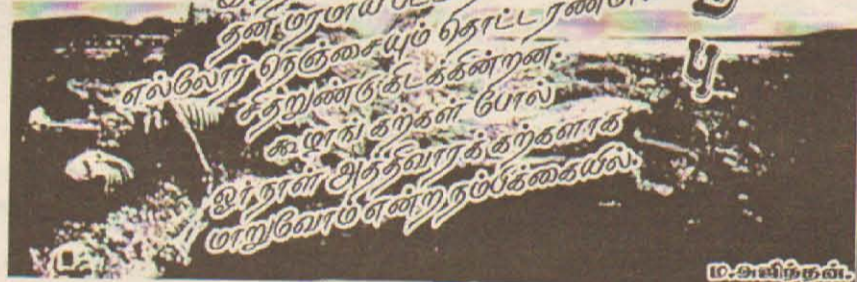 தனி மரமாய்
எல்லோர் நெஞ்சையும் தொட்ட
சிதறுண்டு கிடக்கின்றன.
கூழாங் கற்கள் போல
ஓர்நாள் அத்திவாரக் கற்களாக
மாறுவோம் என்ற நம்பிக்கையில்.
பு
ம.அஜிந்தன்.